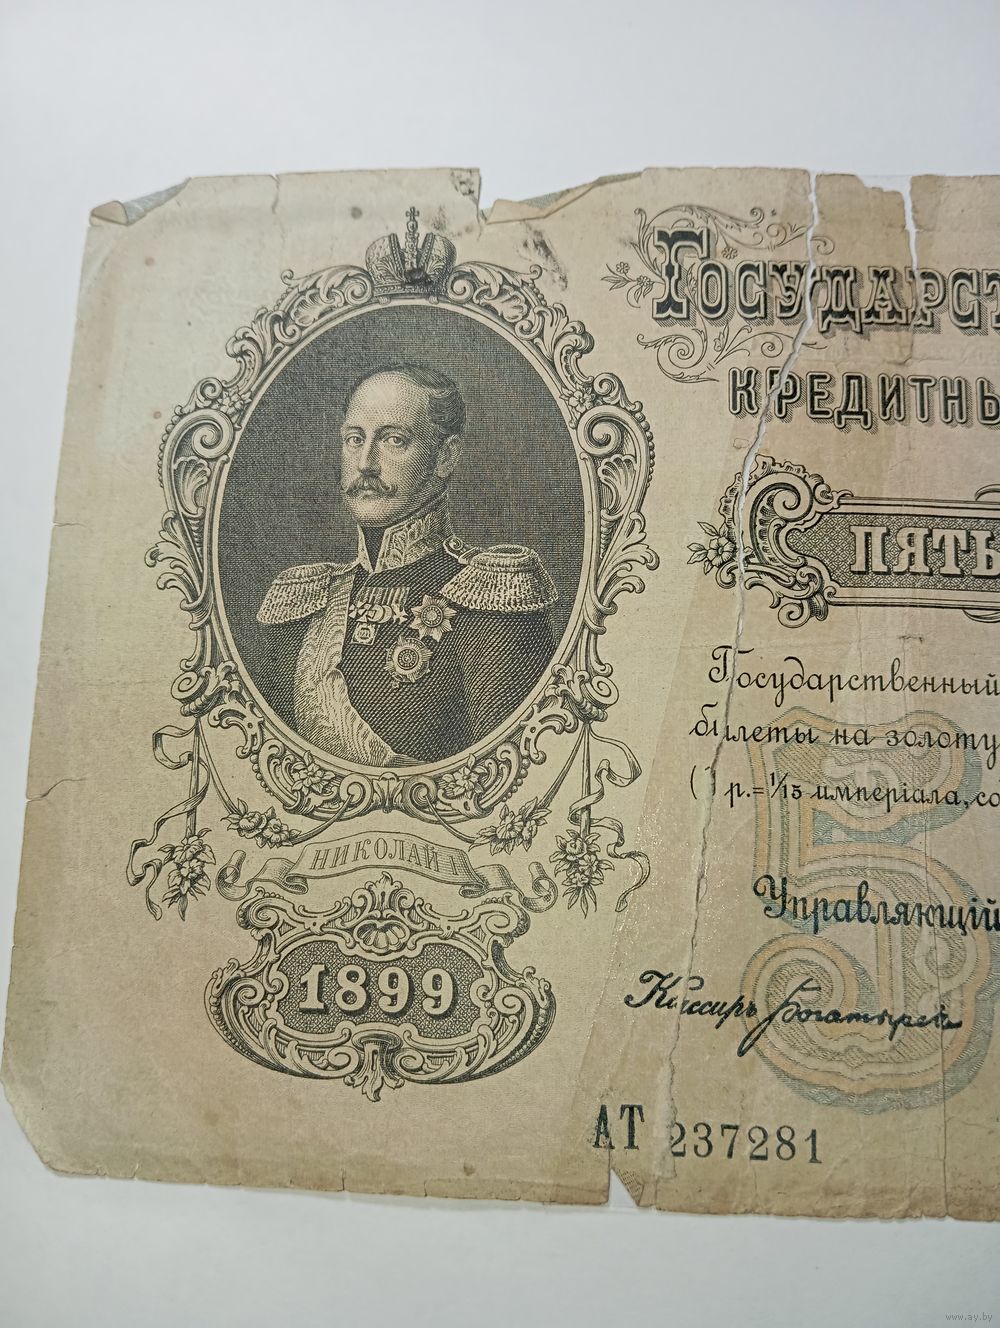 Государст
кредитны
пять
Государственный
билеты на золоту
(1 р.=1/15 имперіала, со
Управляющій
Кассиръ Богатырев
НИКОЛАЙ I
1899
АТ 237281
www.ay.by